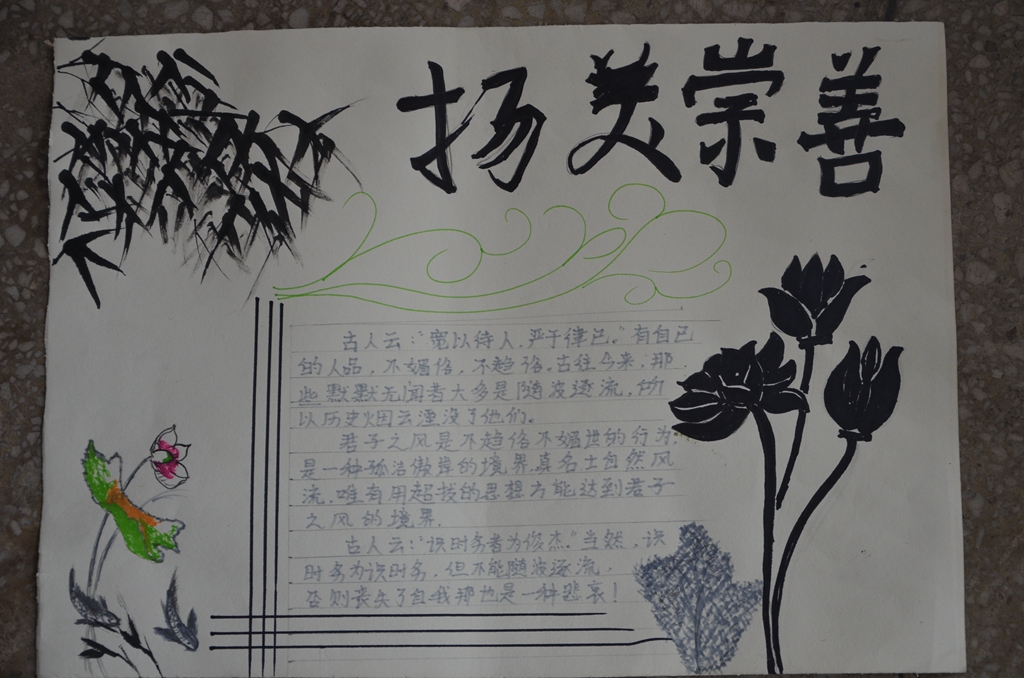 扬美崇善
古人云：“宽以待人，严于律己。”有自己
的人品，不媚俗，不趋俗。古往今来，那
些默默无闻者大多是随波逐流，所
以历史烟云湮没了他们。
君子之风是不趋俗不媚世的行为，
是一种孤洁傲岸的境界，真名士自然风
流，唯有用超拔的思想方能达到君子
之风的境界。
古人云：“识时务者为俊杰。”当然，识
时务为识时务，但不能随波逐流，
否则丧失了自我那也是一种悲哀！